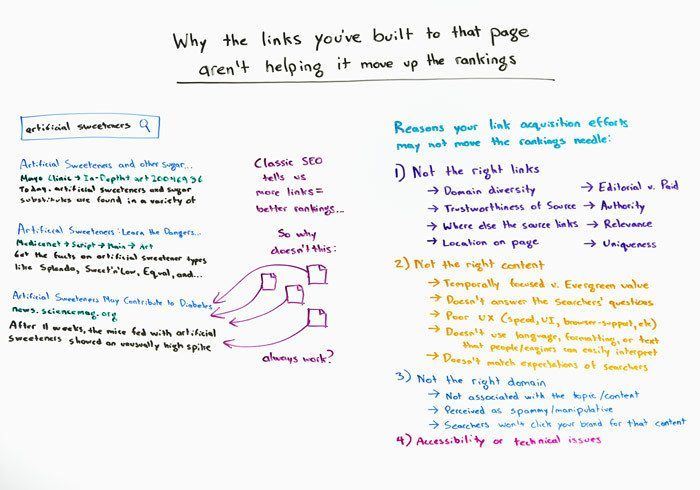 Why the links you've built to that page
aren't helping it move up the rankings
artificial sweeteners
Artificial Sweeteners and other sugar...
Mayo Clinic → In-Depth → art 20046936
Today, artificial sweeteners and sugar
substitutes are found in a variety of
Artificial Sweeteners: Learn the Dangers...
Medicinenet → Script → Main → Art
Get the facts on artificial sweetener types
like Splenda, Sweet'n'Low, Equal, and...
Artificial Sweeteners May Contribute to Diabetes
news.sciencemag.org
After 11 weeks, the mice fed with artificial
sweeteners showed an unusually high spike
Classic SEO
tells us
more links =
better rankings...
So why
doesn't this:
always work?
Reasons your link acquisition efforts
may not move the rankings needle:
1) Not the right links
→ Domain diversity
→ Editorial v. Paid
→ Trustworthiness of Source
→ Authority
→ Where else the source links
→ Relevance
→ Location on page
→ Uniqueness
2) Not the right content
→ Temporally focused v. Evergreen value
→ Doesn't answer the Searchers' questions
→ Poor UX (speed, UI, browser-support, etc)
→ Doesn't use language, formatting, or text
that people/engines can easily interpret
→ Doesn't match expectations of searchers
3) Not the right domain
→ Not associated with the topic/content
→ Perceived as spammy/manipulative
→ Searchers won't click your brand for that content
4) Accessibility or technical issues